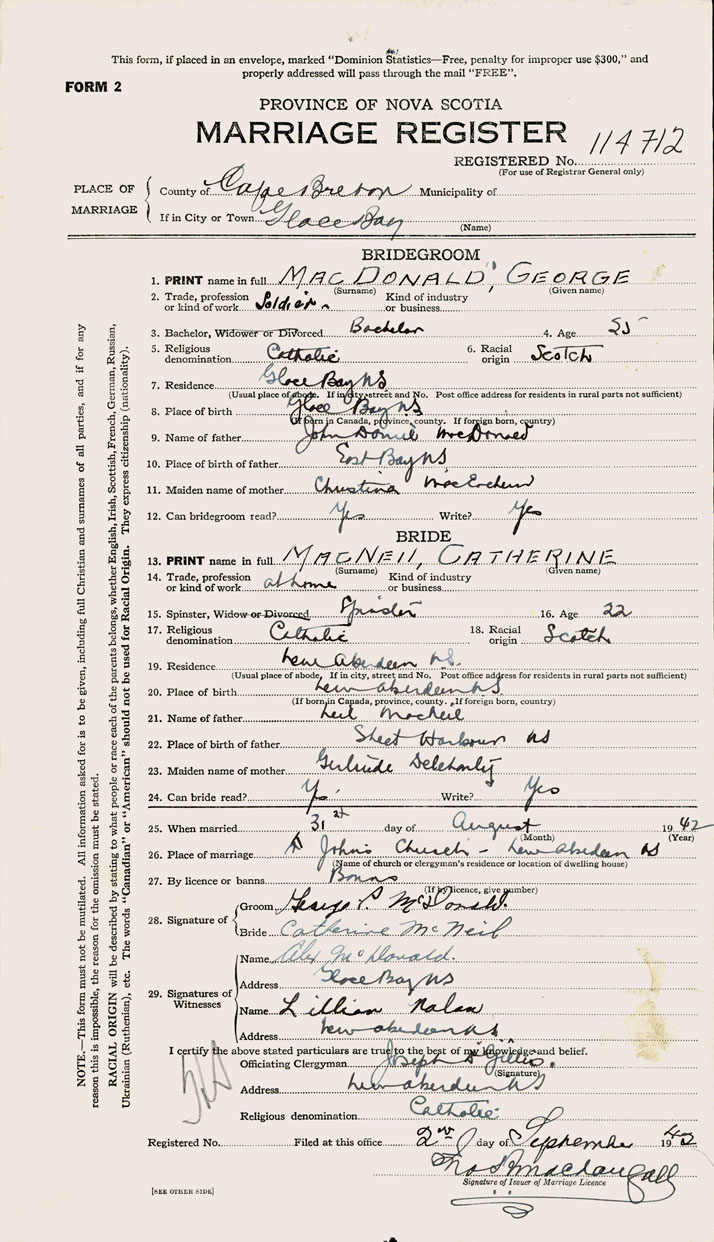 This form, if placed in an envelope, marked "Dominion Statistics—Free, penalty for improper use $300," and
properly addressed will pass through the mail "FREE".
FORM 2
PROVINCE OF NOVA SCOTIA
MARRIAGE REGISTER
REGISTERED No. 114712
(For use of Registrar General only)
PLACE OF MARRIAGE
County of Cape Breton Municipality of
If in City or Town Glace Bay
(Name)
BRIDEGROOM
1. PRINT name in full MACDONALD, GEORGE
(Surname) (Given name)
2. Trade, profession or kind of work Soldier Kind of industry or business
3. Bachelor, Widower or Divorced Bachelor 4. Age 25
5. Religious denomination Catholic 6. Racial origin Scotch
7. Residence Glace Bay NS
(Usual place of abode. If in city, street and No. Post office address for residents in rural parts not sufficient)
8. Place of birth Glace Bay NS
(If born in Canada, province, county. If foreign born, country)
9. Name of father John Daniel MacDonald
10. Place of birth of father East Bay NS
11. Maiden name of mother Christina MacEachern
12. Can bridegroom read? Yes Write? Yes
BRIDE
13. PRINT name in full MACNEIL, CATHERINE
(Surname) (Given name)
14. Trade, profession or kind of work at home Kind of industry or business
15. Spinster, Widow or Divorced Spinster 16. Age 22
17. Religious denomination Catholic 18. Racial origin Scotch
19. Residence New Aberdeen N.S.
(Usual place of abode, If in city, street and No. Post office address for residents in rural parts not sufficient)
20. Place of birth New Aberdeen NS
(If born in Canada, province, county. If foreign born, country)
21. Name of father Neil MacNeil
22. Place of birth of father Sheet Harbour NS
23. Maiden name of mother Gertrude Delehanty
24. Can bride read? Yes Write? Yes
25. When married 31st day of August 1942
(Month) (Year)
26. Place of marriage St Johns Church - New Aberdeen NS
(Name of church or clergyman's residence or location of dwelling house)
27. By licence or banns Banns
(If by licence, give number)
28. Signature of
Groom George P. McDonald.
Bride Catherine McNeil
29. Signatures of Witnesses
Name Alex McDonald.
Address Glace Bay NS
Name Lillian Nolan
Address New Aberdeen NS
I certify the above stated particulars are true to the best of my knowledge and belief.
Officiating Clergyman Joseph D Gillis.
(Signature)
Address New Aberdeen NS
Religious denomination Catholic
Registered No. Filed at this office 2nd day of September 1942
Signature of Issuer of Marriage Licence
[SEE OTHER SIDE]
NOTE.—This form must not be mutilated. All information asked for is to be given, including full Christian and surnames of all parties, and if for any
reason this is impossible, the reason for the omission must be stated.
RACIAL ORIGIN will be described by stating to what people or race each of the parents belongs, whether English, Irish, Scottish, French, German, Russian,
Ukrainian (Ruthenian), etc. The words "Canadian" or "American" should not be used for Racial Origin. They express citizenship (nationality).